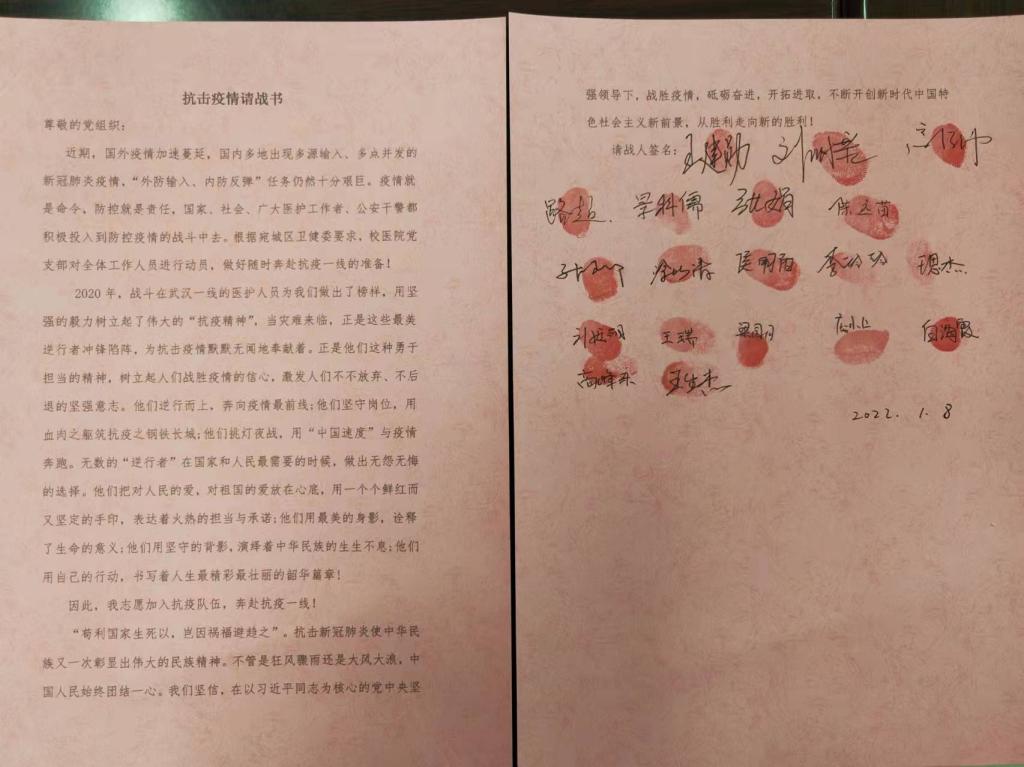 抗击疫情请战书
尊敬的党组织：
近期，国外疫情加速蔓延，国内多地出现多源输入、多点并发的
新冠肺炎疫情，“外防输入、内防反弹”任务仍然十分艰巨。疫情就
是命令，防控就是责任，国家、社会、广大医护工作者、公安干警都
积极投入到防控疫情的战斗中去。根据宛城区卫健委要求，校医院党
支部对全体工作人员进行动员，做好随时奔赴抗疫一线的准备！
2020 年，战斗在武汉一线的医护人员为我们做出了榜样，用坚
强的毅力树立起了伟大的“抗疫精神”，当灾难来临，正是这些最美
逆行者冲锋陷阵，为抗击疫情默默无闻地奉献着。正是他们这种勇于
担当的精神，树立起人们战胜疫情的信心，激发人们不不放弃、不后
退的坚强意志。他们逆行而上，奔向疫情最前线；他们坚守岗位，用
血肉之躯筑抗疫之钢铁长城；他们挑灯夜战，用“中国速度”与疫情
奔跑。无数的“逆行者”在国家和人民最需要的时候，做出无怨无悔
的选择。他们把对人民的爱，对祖国的爱放在心底，用一个个鲜红而
又坚定的手印，表达着火热的担当与承诺；他们用最美的身影，诠释
了生命的意义；他们用坚守的背影，演绎着中华民族的生生不息；他们
用自己的行动，书写着人生最精彩最壮丽的韶华篇章！
因此，我志愿加入抗疫队伍，奔赴抗疫一线！
“苟利国家生死以，岂因祸福避趋之”。抗击新冠肺炎使中华民
族又一次彰显出伟大的民族精神。不管是狂风骤雨还是大风大浪，中
国人民始终团结一心。我们坚信，在以习近平同志为核心的党中央坚
强领导下，战胜疫情，砥砺奋进，开拓进取，不断开创新时代中国特
色社会主义新前景，从胜利走向新的胜利！
请战人签名：王建勋
路超
王瑞 白海霞
王生杰
2022.1.8